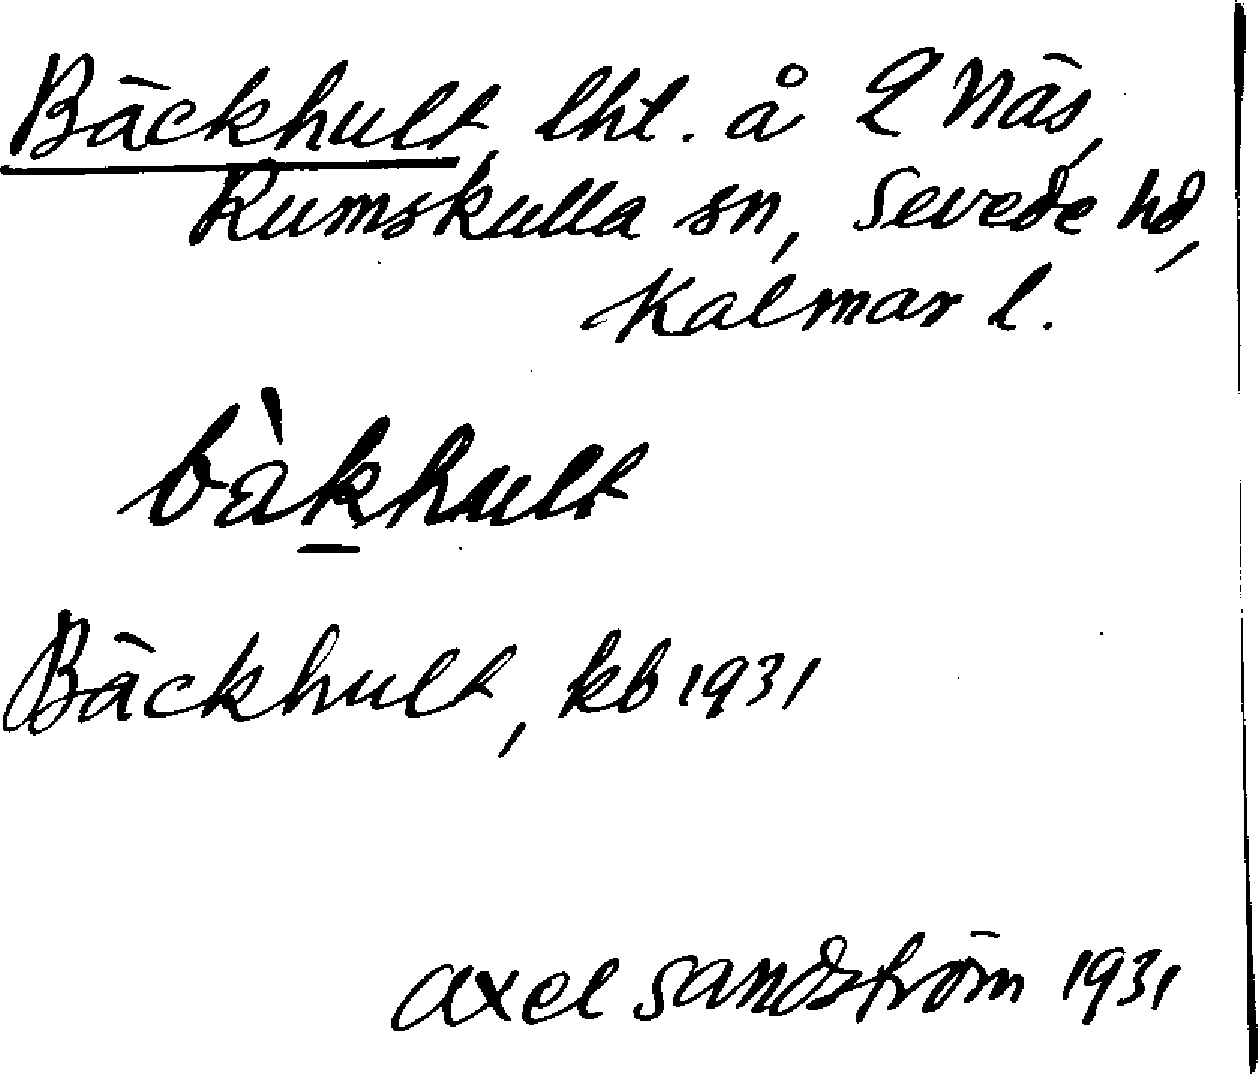 Bäckhult, lht. å L Näs,
Rumskulla sn, Sevede hd,
Kalmar l.
bàkhult
Bäckhult, kb 1931
Axel Sandström 1931